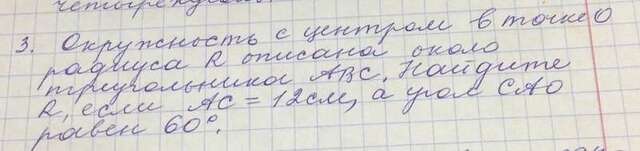 3. Окружность с центром в точке О
радиуса R описана около
треугольника АВС. Найдите
R, если АС = 12см, а угол САО
равен 60°.